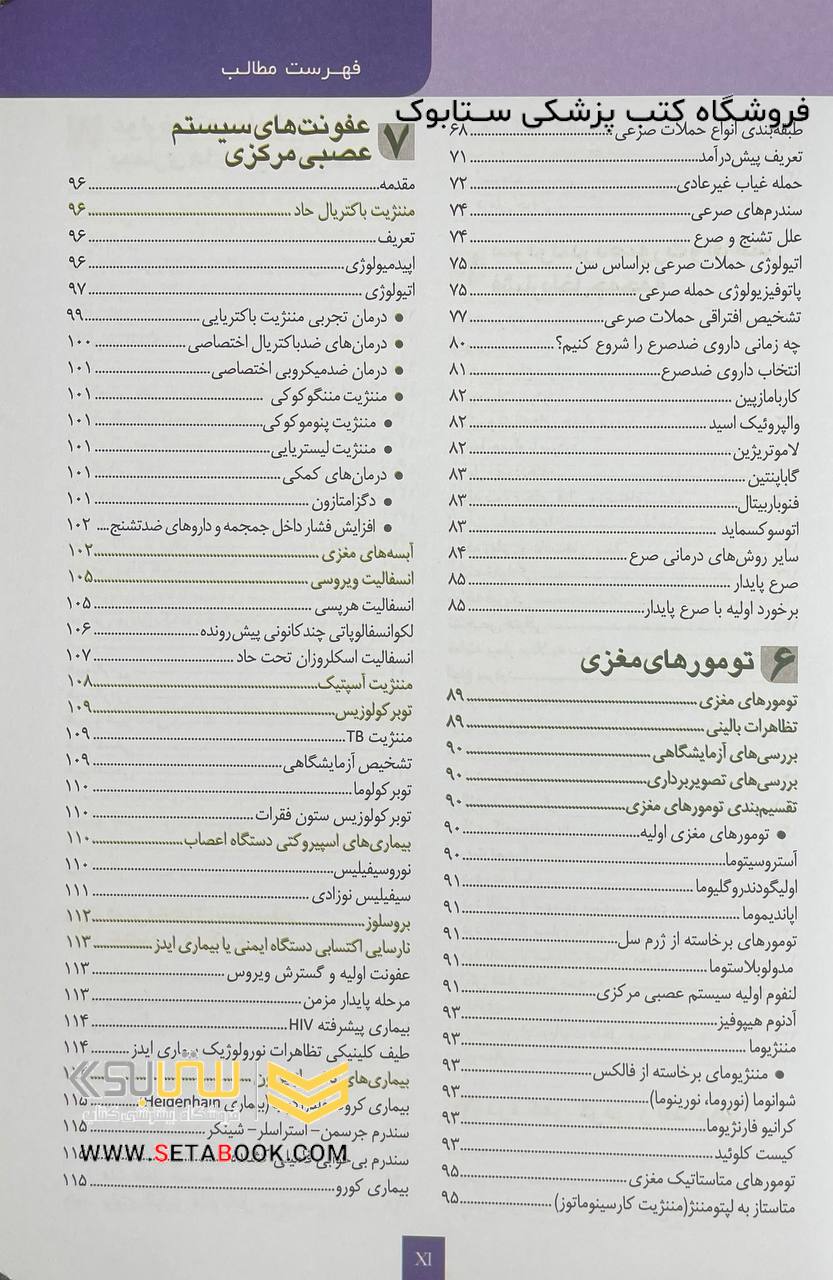 فهرست مطالب
فروشگاه کتب پزشکی ستابوک
طبقه‌بندی انواع حملات صرعی ۶۸
تعریف پیش‌درآمد ۷۱
حمله غیاب غیرعادی ۷۲
سندرم‌های صرعی ۷۴
علل تشنج و صرع ۷۴
اتیولوژی حملات صرعی براساس سن ۷۵
پاتوفیزیولوژی حمله صرعی ۷۵
تشخیص افتراقی حملات صرعی ۷۷
چه زمانی داروی ضدصرع را شروع کنیم؟ ۸۰
انتخاب داروی ضدصرع ۸۱
کاربامازپین ۸۲
والپروئیک اسید ۸۲
لاموتریژین ۸۲
گاباپنتین ۸۳
فنوباربیتال ۸۳
اتوسوکسماید ۸۳
سایر روش‌های درمانی صرع ۸۴
صرع پایدار ۸۵
برخورد اولیه با صرع پایدار ۸۵
۶ تومورهای مغزی
تومورهای مغزی ۸۹
تظاهرات بالینی ۸۹
بررسی‌های آزمایشگاهی ۹۰
بررسی‌های تصویربرداری ۹۰
تقسیم‌بندی تومورهای مغزی ۹۰
● تومورهای مغزی اولیه ۹۰
آستروسیتوما ۹۰
اولیگودندروگلیوما ۹۱
اپاندیموما ۹۱
تومورهای برخاسته از ژرم سل ۹۱
مدولوبلاستوما ۹۱
لنفوم اولیه سیستم عصبی مرکزی ۹۱
آدنوم هیپوفیز ۹۳
مننژیوما ۹۳
● مننژیومای برخاسته از فالکس ۹۳
شوانوما (نوروما، نورینوما) ۹۳
کرانیو فارنژیوما ۹۳
کیست کلوئید ۹۳
تومورهای متاستاتیک مغزی ۹۵
متاستاز به لپتومننژ(مننژیت کارسینوماتوز) ۹۵
۷ عفونت‌های سیستم
عصبی مرکزی
مقدمه ۹۶
مننژیت باکتریال حاد ۹۶
تعریف ۹۶
اپیدمیولوژی ۹۶
اتیولوژی ۹۷
● درمان تجربی مننژیت باکتریایی ۹۹
● درمان‌های ضدباکتریال اختصاصی ۱۰۰
● درمان ضدمیکروبی اختصاصی ۱۰۱
● مننژیت مننگوکوکی ۱۰۱
● مننژیت پنوموکوکی ۱۰۱
● مننژیت لیستریایی ۱۰۱
● درمان‌های کمکی ۱۰۱
● دگزامتازون ۱۰۱
● افزایش فشار داخل جمجمه و داروهای ضدتشنج ۱۰۲
آبسه‌های مغزی ۱۰۲
انسفالیت ویروسی ۱۰۵
انسفالیت هرپسی ۱۰۵
لکوانسفالوپاتی چندکانونی پیش‌رونده ۱۰۶
انسفالیت اسکلروزان تحت حاد ۱۰۷
مننژیت آسپتیک ۱۰۸
توبرکولوزیس ۱۰۹
مننژیت TB ۱۰۹
تشخیص آزمایشگاهی ۱۰۹
توبرکولوما ۱۱۰
توبرکولوزیس ستون فقرات ۱۱۰
بیماری‌های اسپیروکتی دستگاه اعصاب ۱۱۰
نوروسیفیلیس ۱۱۰
سیفیلیس نوزادی ۱۱۱
بروسلوز ۱۱۲
نارسایی اکتسابی دستگاه ایمنی یا بیماری ایدز ۱۱۳
عفونت اولیه و گسترش ویروس ۱۱۳
مرحله پایدار مزمن ۱۱۳
بیماری پیشرفته HIV ۱۱۴
طیف کلینیکی تظاهرات نورولوژیک بیماری ایدز ۱۱۴
بیماری‌های
ستابوک
فروشگاه اینترنتی کتاب
بیماری Heidenhain) ۱۱۵
سندرم جرسمن- استراسلر- شینکر ۱۱۵
WWW.SETABOOK.COM
سندرم بی‌خوابی
بیماری کورو ۱۱۵
XI